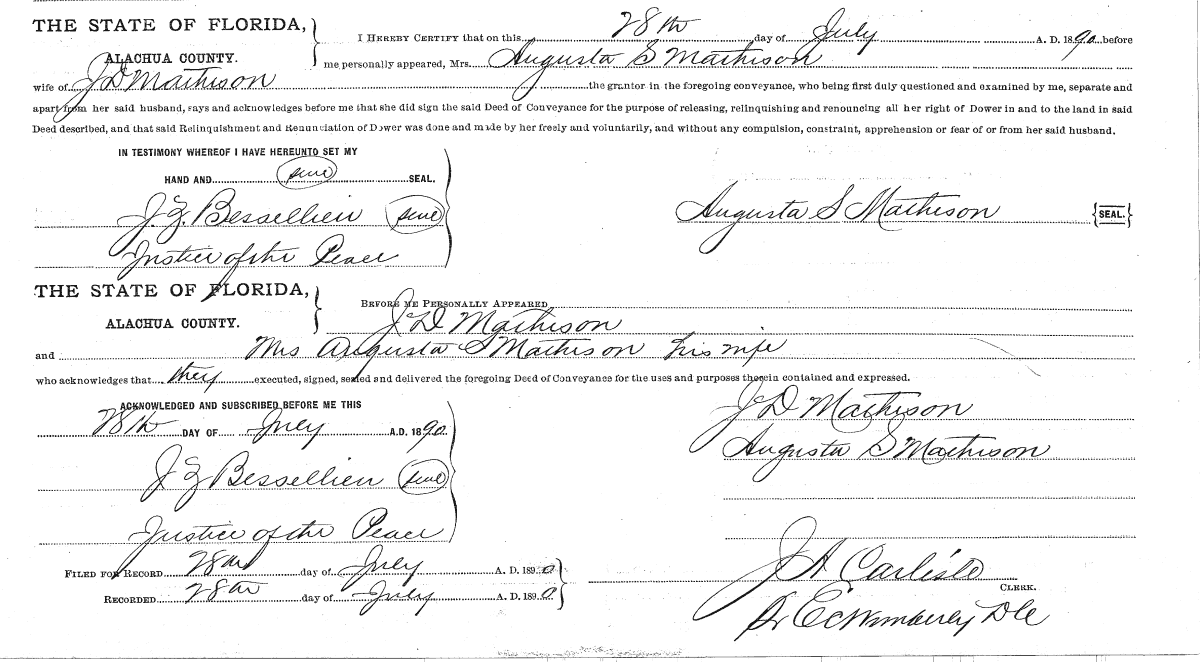 THE STATE OF FLORIDA,
ALACHUA COUNTY.
I HEREBY CERTIFY that on this 28th day of July A. D. 1890 before
me personally appeared, Mrs. Augusta S Mathison
wife of J D Mathison the grantor in the foregoing conveyance, who being first duly questioned and examined by me, separate and
apart from her said husband, says and acknowledges before me that she did sign the said Deed of Conveyance for the purpose of releasing, relinquishing and renouncing all her right of Dower in and to the land in said
Deed described, and that said Relinquishment and Renunciation of Dower was done and made by her freely and voluntarily, and without any compulsion, constraint, apprehension or fear of or from her said husband.
IN TESTIMONY WHEREOF I HAVE HEREUNTO SET MY
HAND AND seal SEAL.
J. Z. Bessellieu seal
Justice of the Peace
Augusta S Mathison SEAL.
THE STATE OF FLORIDA,
ALACHUA COUNTY.
BEFORE ME PERSONALLY APPEARED
J D Mathison
and Mrs Augusta S Mathison his wife
who acknowledges that they executed, signed, sealed and delivered the foregoing Deed of Conveyance for the uses and purposes therein contained and expressed.
ACKNOWLEDGED AND SUBSCRIBED BEFORE ME THIS
28th DAY OF July A.D. 1890
J Z Bessellieu seal
Justice of the Peace
J D Mathison
Augusta S Mathison
FILED FOR RECORD 28th day of July A. D. 1890
RECORDED 28th day of July A. D. 1890
J A Carlisle
CLERK.
Pr E C Wimberly D C